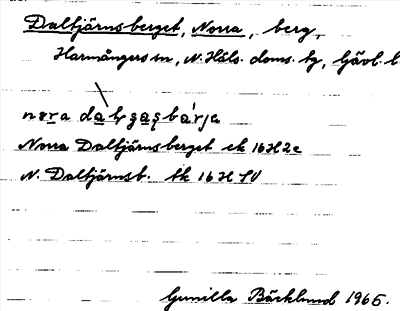 Daltjärnsberget, Norra, berg,
Harmångers sn, N. Häls. doms. hg, Gävl. l
Norra Daltjärnsberget ek 16H2e
N. Daltjärnsb. tk 16H SV
Gunilla Bäcklund 1965.